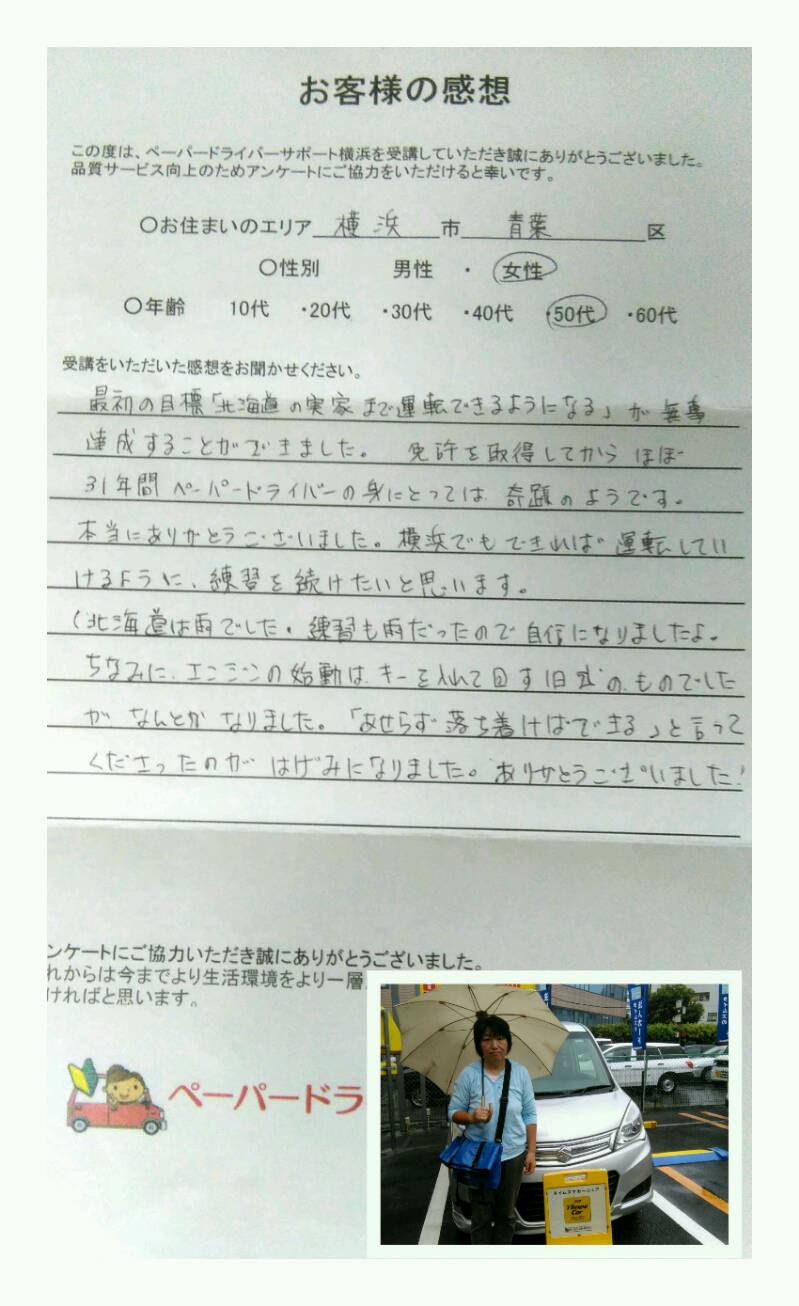 お客様の感想
この度は、ペーパードライバーサポート横浜を受講していただき誠にありがとうございました。
品質サービス向上のためアンケートにご協力をいただけると幸いです。
〇お住まいのエリア 横浜 市 青葉 区
〇性別 男性 ・ 女性
〇年齢 10代 ・20代 ・30代 ・40代 ・50代 ・60代
受講をいただいた感想をお聞かせください。
最初の目標「北海道の実家まで運転できるようになる」が無事
達成することができました。 免許を取得してから ほぼ
31年間 ペーパードライバーの身にとっては、奇蹟のようです。
本当にありがとうございました。横浜でもできれば運転してい
けるように、練習を続けたいと思います。
(北海道は雨でした。練習も雨だったので自信になりましたよ。
ちなみに、エンジンの始動は、キーを入れて回す旧式のものでした
が なんとかなりました。「あせらず落ち着けばできる」と言って
くださったのが はげみになりました。ありがとうございました!
ンケートにご協力いただき誠にありがとうございました。
れからは今までより生活環境をより一層
ければと思います。
ペーパードラ
タイムズカー
Times
Car